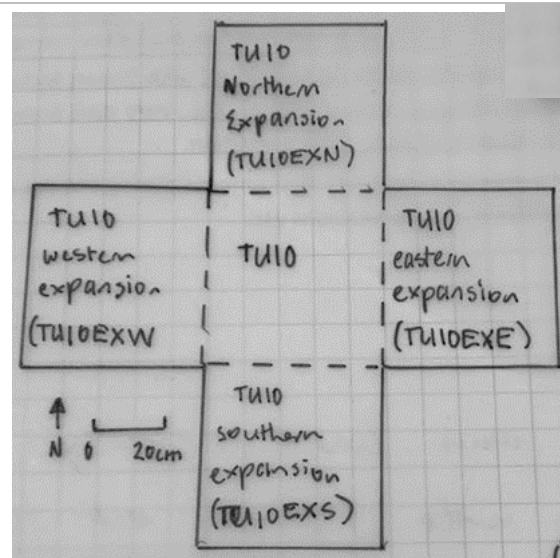 TU10
Northern
Expansion
(TU10EXN)
TU10
western
expansion
(TU10EXW
TU10
TU10
eastern
expansion
(TU10EXE)
TU10
southern
expansion
(TU10EXS)
N 0 20cm